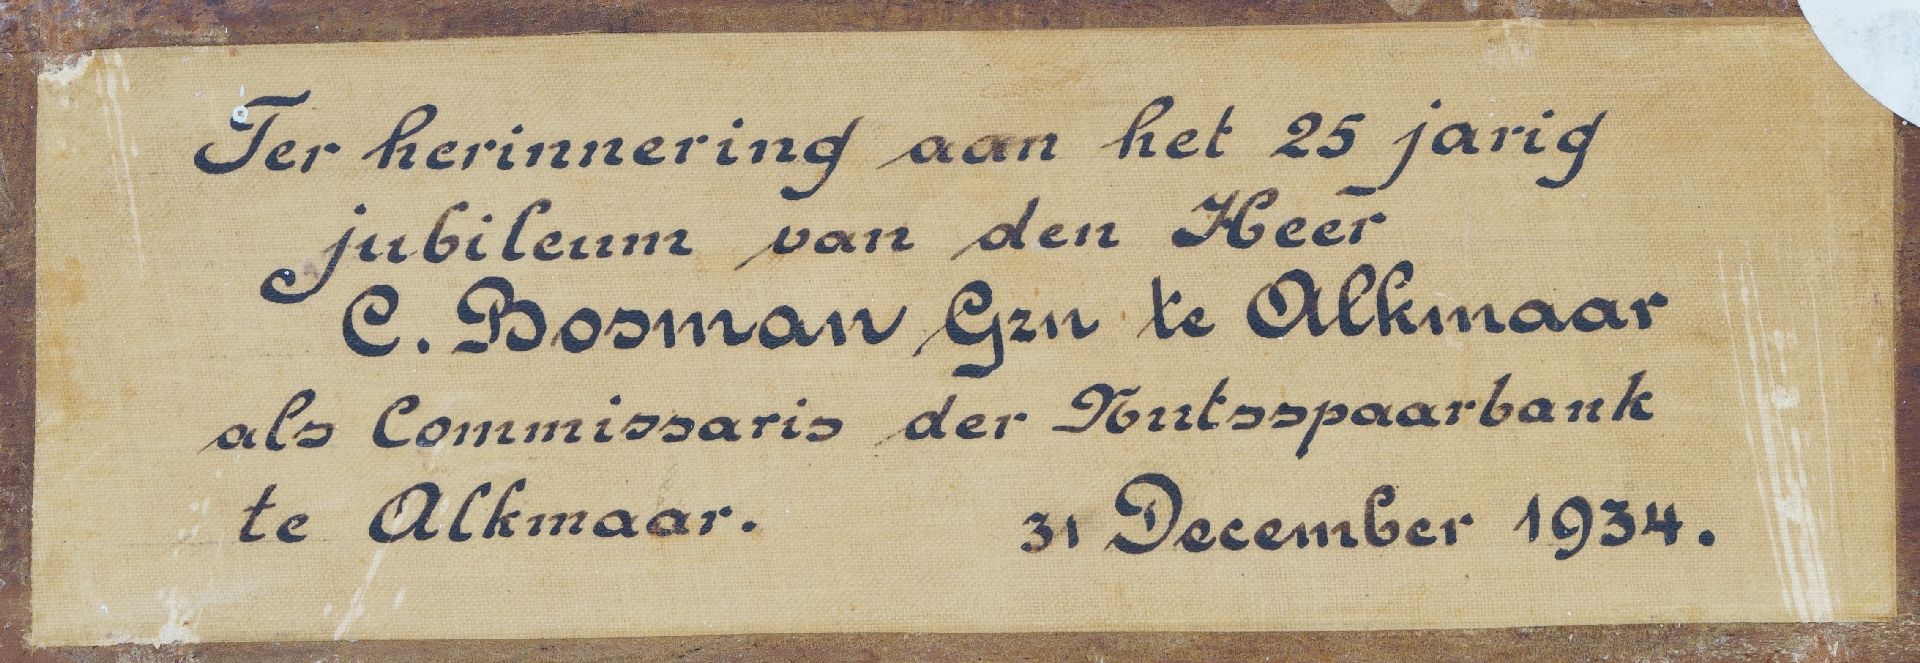 Ter herinnering aan het 25 jarig
jubileum van den Heer
C. Bosman Gzn te Alkmaar
als Commissaris der Nutsspaarbank
te Alkmaar. 31 December 1934.